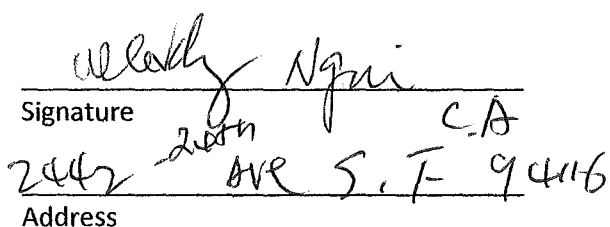 Ngai
Signature
C.A
2442 -24th Ave S.F 94116
Address